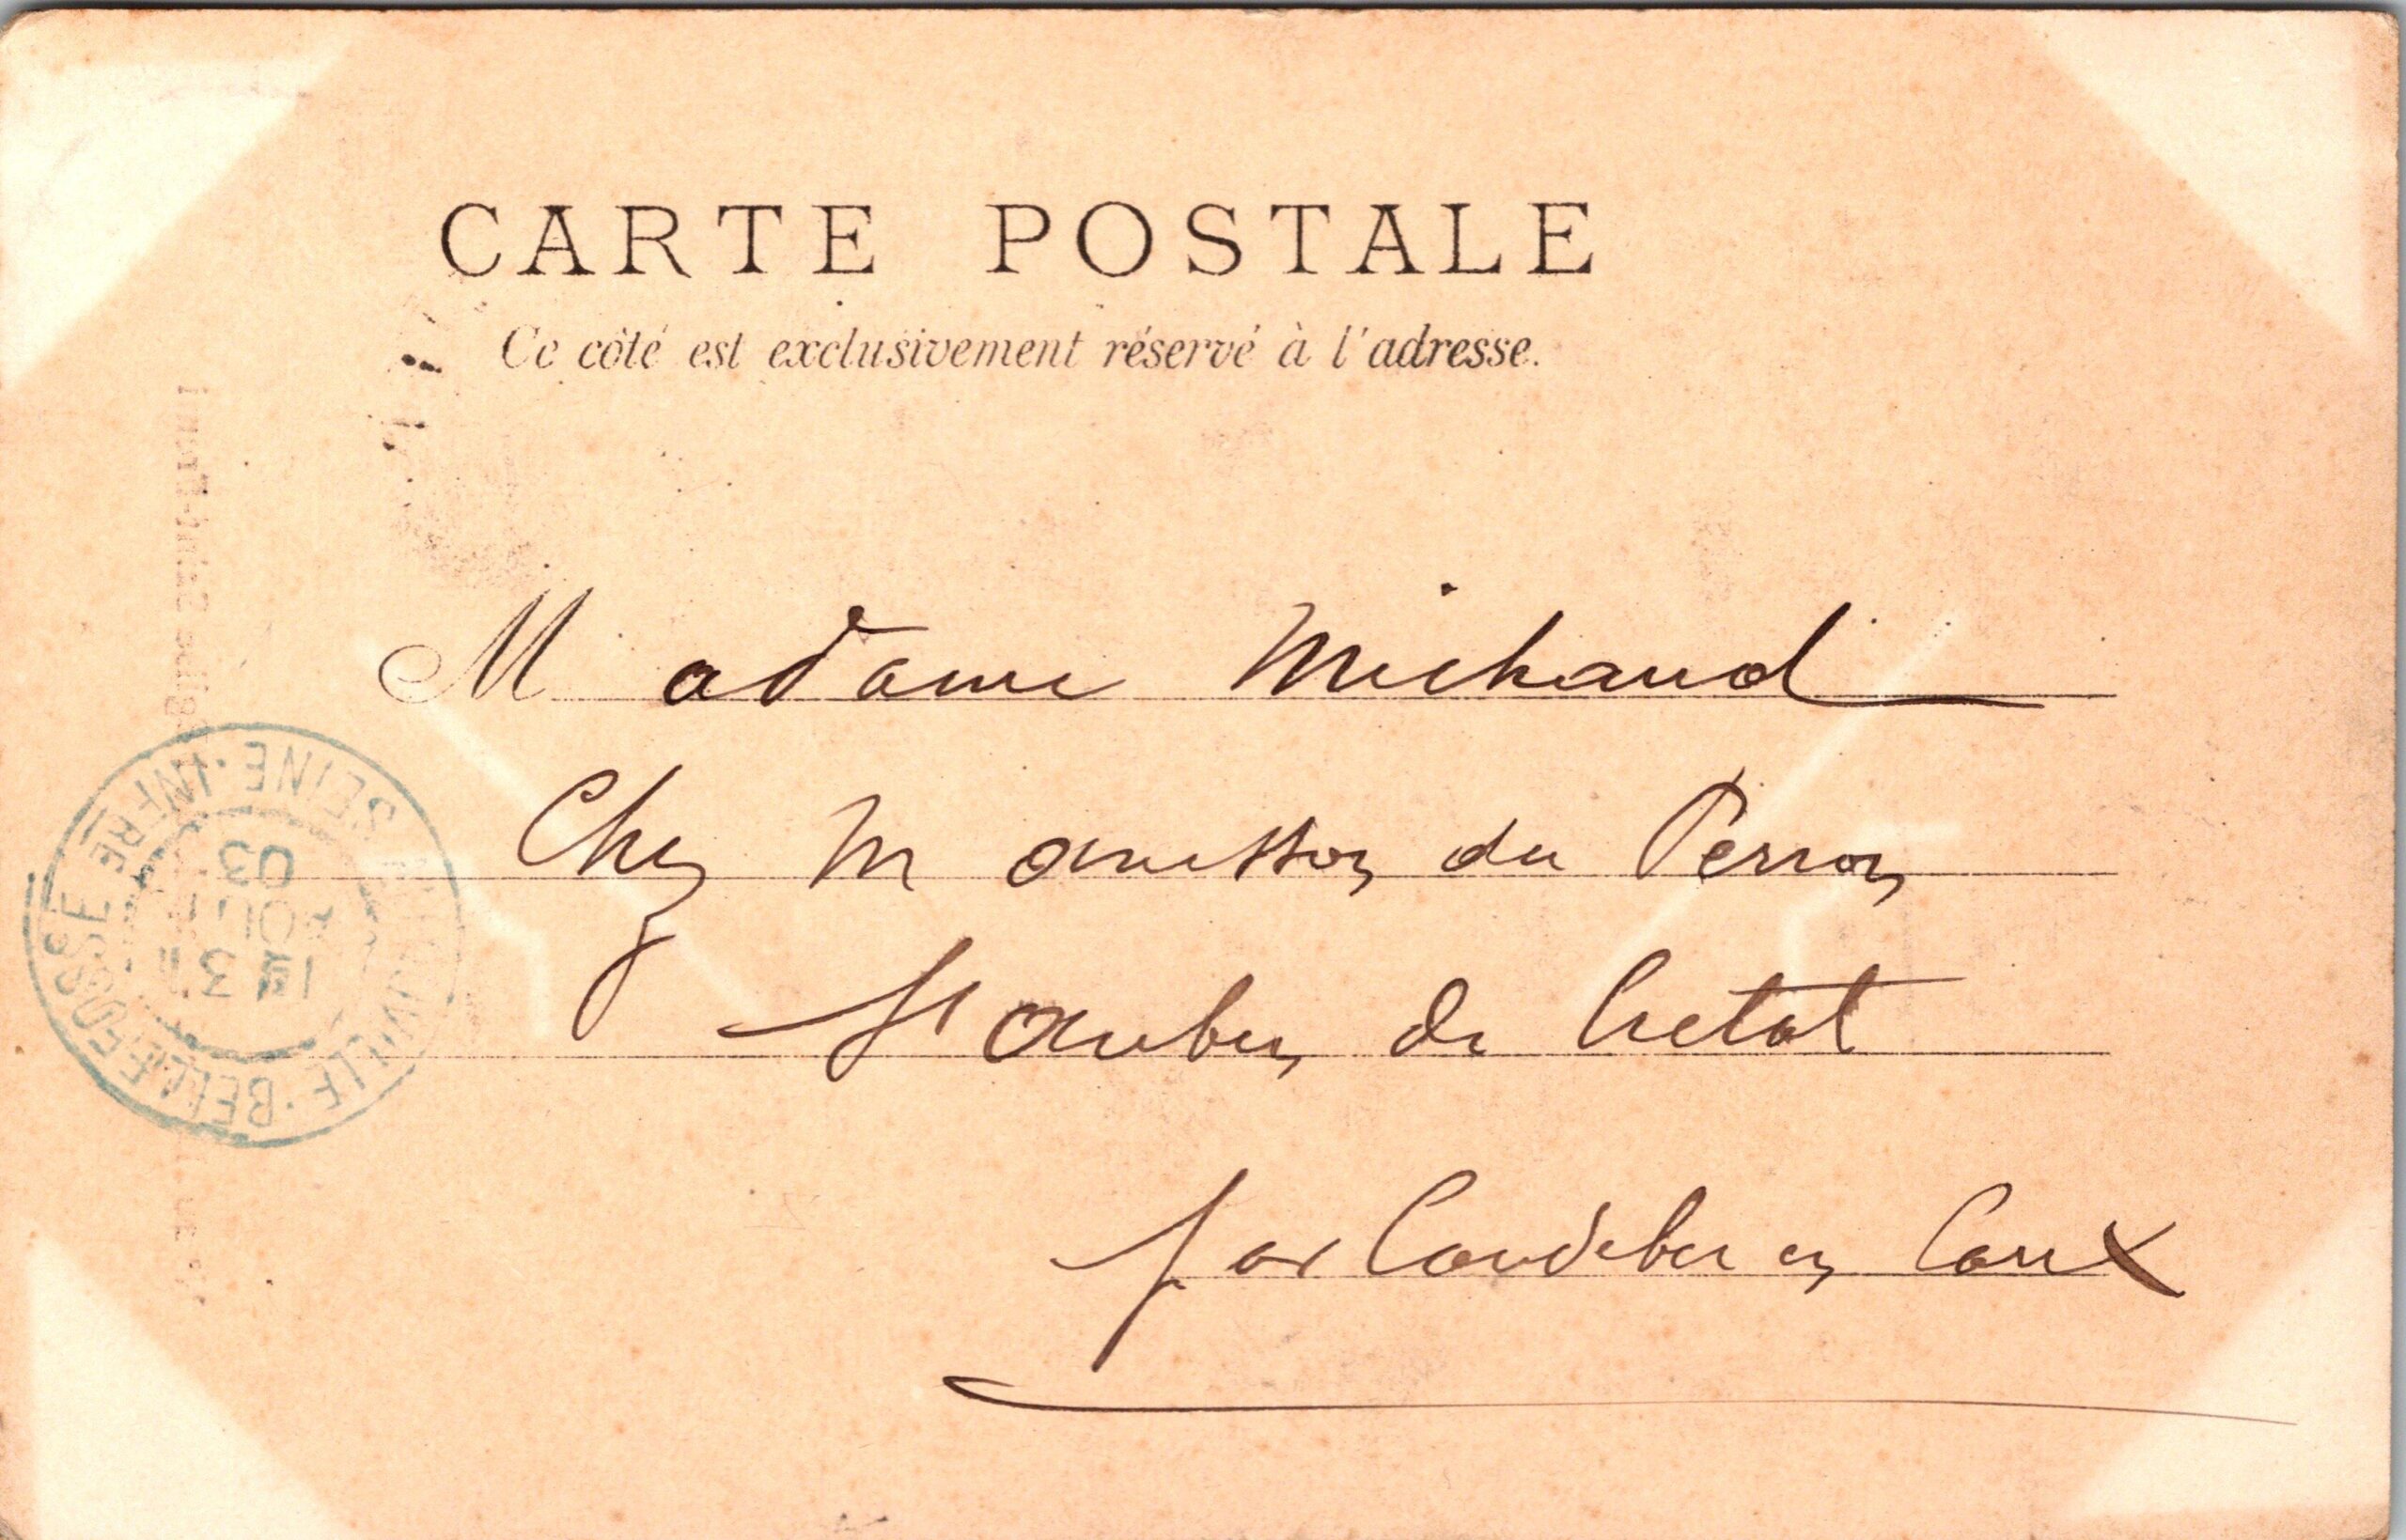 CARTE POSTALE
Ce côté est exclusivement réservé à l'adresse.
Madame Michaud
Chez M anisson du Perron
St Aubin de Cretot
par Caudebec en Caux
SEINE-INFRE
03
BELLEFOSSE